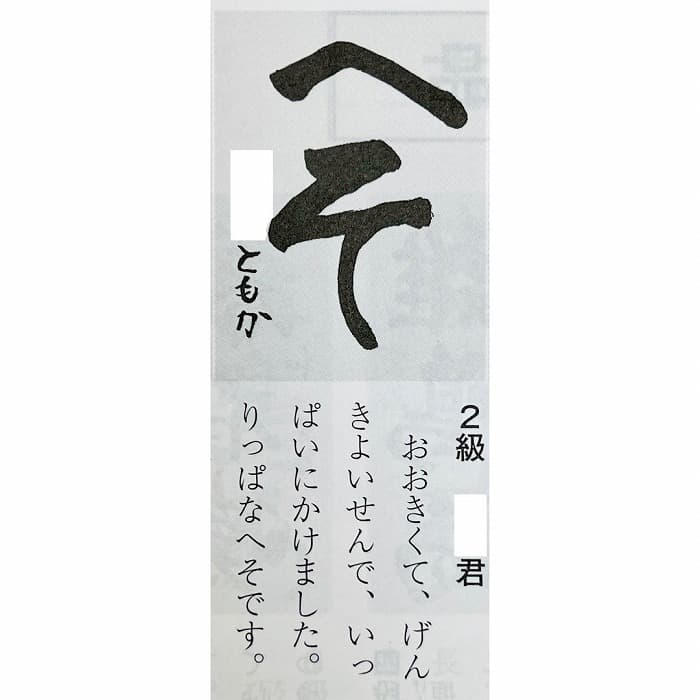 へそ
ともか
2級 君
おおきくて、げん
きよいせんで、いっ
ぱいにかけました。
りっぱなへそです。